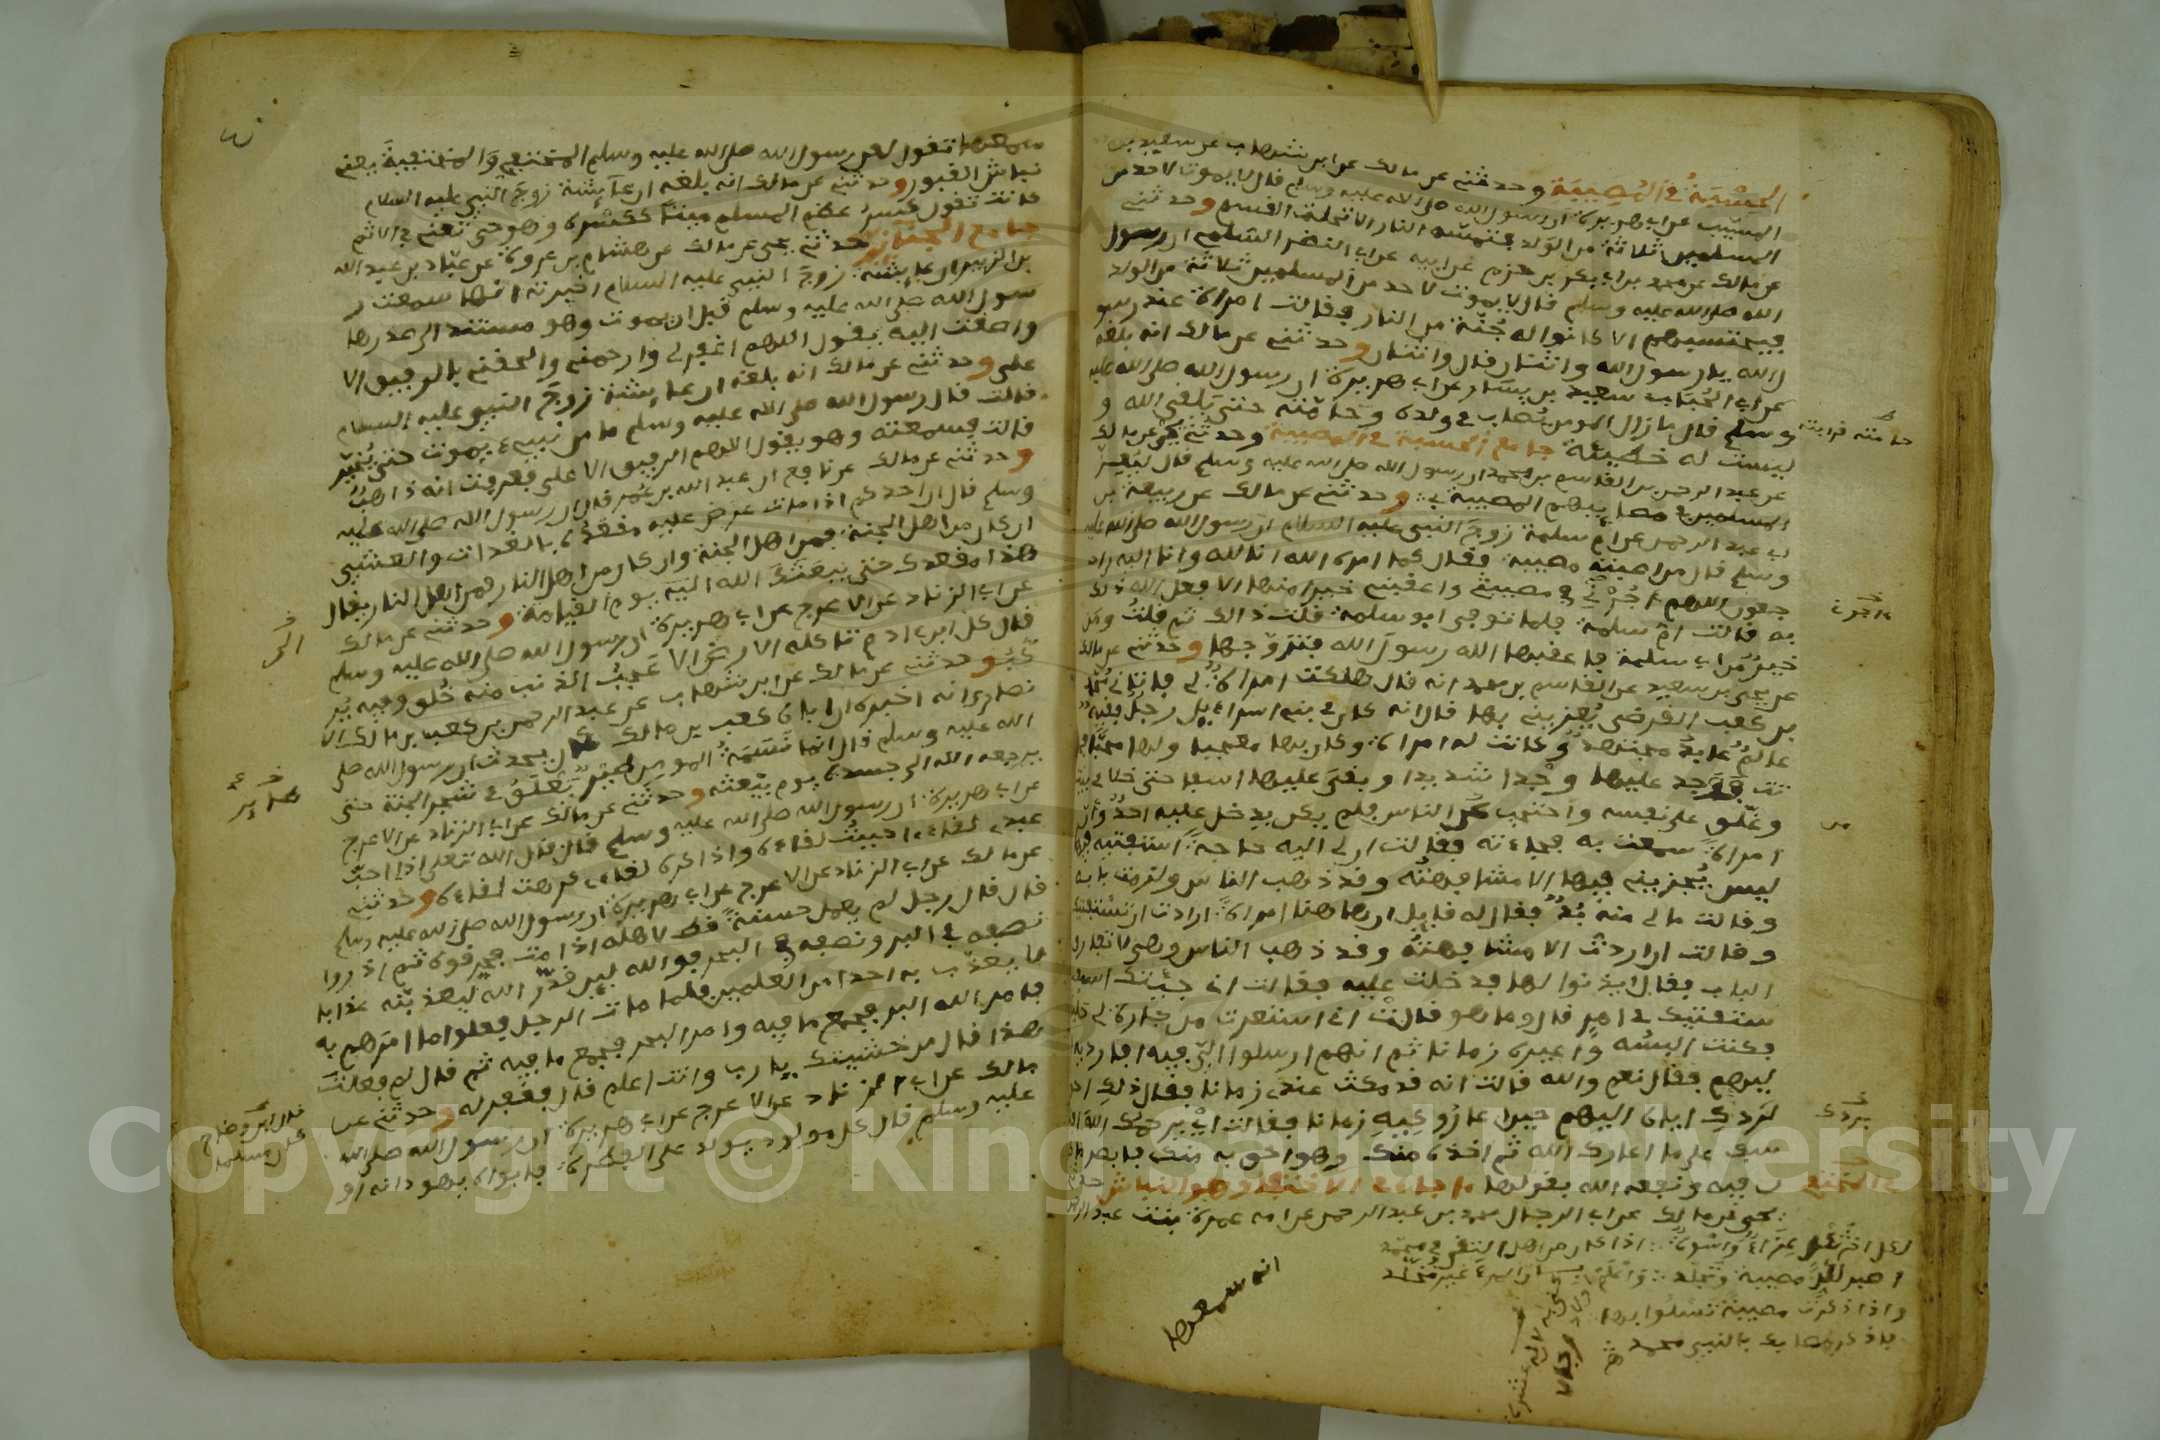 الحسبة في المصيبة وحدثني عن مالك عن ابن شهاب عن سعيد بن
المسيب عن ابي هريرة ان رسول الله صلى الله عليه وسلم قال لا يموت لاحد من
المسلمين ثلاثة من الولد فتمسه النار الا تحلة القسم وحدثني
عن مالك عن محمد بن ابي بكر بن حزم عن ابيه عن ابي النضر السلمي ان رسول
الله صلى الله عليه وسلم قال لا يموت لاحد من المسلمين ثلاثة من الولد
فيحتسبهم الا كانوا له جنة من النار فقالت امراة عند رسو
ل الله يا رسول الله واثنان قال واثنان وحدثني عن مالك انه بلغه
عن ابي الحباب سعيد بن يسار عن ابي هريرة ان رسول الله صلى الله عليه
وسلم قال ما يزال المومن يصاب في ولده وحامته حتى يلقى الله و
ليست له خطيئة جامع الحسبة في المصيبة وحدثني يحيى عن مالك
عن عبد الرحمن بن القاسم بن محمد ان رسول الله صلى الله عليه وسلم قال ليعز
المسلمين في مصايبهم المصيبة بي وحدثني عن مالك عن ربيعة بن
ابي عبد الرحمن عن ام سلمة زوج النبي عليه السلام ان رسول الله صلى الله عليه
وسلم قال من اصابته مصيبة فقال كما امره الله انا لله وانا اليه را
جعون اللهم اجرني في مصيبتي واعقبني خيرا منها الا فعل الله ذلك
به قالت ام سلمة فلما توفي ابو سلمة قلت ذالك ثم قلت ومن
خير من ابي سلمة فاعقبها الله رسول الله فتزوجها وحدثني عن مالك
عن يحيى بن سعيد عن القاسم بن محمد انه قال هلكت امراة لي فاتاني محمد
بن كعب القرضي يعزيني بها فقال انه كان في بني اسراءيل رجل فقيه
عالم عابد مجتهد وكانت له امراة وكان بها معجبا ولها محبا فما
تت فوجد عليها وجدا شديدا ولقي عليها اسفا حتى خلا في بيت
وغلق على نفسه واحتجب عن الناس فلم يكن يدخل عليه احد وان
امراة سمعت به فجاءته فقالت ان لي اليه حاجة استفتيه فيها
ليس يجزيني فيها الا مشافهته وقد ذهب الناس ولزمت بابه
وقالت ما لي منه بد فقال له قايل ان هاهنا امراة ارادت ان تستفتيك
وقالت ان اردت الا مشافهته وقد ذهب الناس وهي لا تفارق
الباب فقال ايذنوا لها فدخلت عليه فقالت اني جيتك
ستفتيك في امر قال وما هو قالت اني استعرت من جارة لي حليا
فكنت البسه واعيره زمانا ثم انهم ارسلوا الي فيه افارده
اليهم فقال نعم والله قالت انه قد مكث عندي زمانا فقال ذلك احق
لردك اياه اليهم حين اعاروكيه زمانا فقالت اي يرحمك الله
سف على ما اعارك الله ثم اخذه منك وهو احق به منك فابصر ما كا
ن فيه ونفعه الله بقولها ما جاء في الاختفاء وهو النباش حدثني
يحيى عن مالك عن ابي الرجال محمد بن عبد الرحمن عن امه عمرة بنت عبد الرحمن
انه سمعها
حامته قرابته
يردك
اصبر لكل مصيبة وتجلد واعلم بان المرء غير مخلد
واذا ذكرت مصيبة تسلوا بها
فاذكر مصابك بالنبي محمد
سمعها تقول لعن رسول الله صلى الله عليه وسلم المختفي والمختفية يعني
نباش القبور وحدثني عن مالك انه بلغه ان عايشة زوج النبي عليه السلام
كانت تقول كسر عظم المسلم ميتا ككسره وهو حي تعني في الاثم
جامع الجنائز حدثني يحيى عن مالك عن هشام بن عروة عن عباد بن عبد الله
بن الزبير ان عايشة زوج النبي عليه السلام اخبرته انها سمعت ر
سول الله صلى الله عليه وسلم قبل ان يموت وهو مستند الى صدرها
واصغت اليه يقول اللهم اغفر لي وارحمني والحقني بالرفيق الا
على وحدثني عن مالك انه بلغه ان عايشة زوج النبي عليه السلام
قالت قال رسول الله صلى الله عليه وسلم ما من نبيء يموت حتى يخير
قالت فسمعته وهو يقول اللهم الرفيق الاعلى فعرفت انه ذاهب
وحدثني عن مالك عن نافع ان عبد الله بن عمر قال ان رسول الله صلى الله عليه
وسلم قال ان احدكم اذا مات عرض عليه مقعده بالغداة والعشي
ان كان من اهل الجنة فمن اهل الجنة وان كان من اهل النار فمن اهل النار يقال
هذا مقعدك حتى يبعثك الله اليه يوم القيامة وحدثني عن مالك
عن ابي الزناد عن الاعرج عن ابي هريرة ان رسول الله صلى الله عليه وسلم
قال كل ابن ادم تاكله الارض الا عجب الذنب منه خلق وفيه ير
كب وحدثني عن مالك عن ابن شهاب عن عبد الرحمن بن كعب بن مالك الا
نصاري انه اخبره ان اباه كعب بن مالك كان يحدث ان رسول الله صلى
الله عليه وسلم قال انما نسمة المومن طير يعلق في شجر الجنة حتى
يرجعه الله الى جسده يوم يبعثه وحدثني عن مالك عن ابي الزناد عن الاعرج
عن ابي هريرة ان رسول الله صلى الله عليه وسلم قال قال الله تعلى اذا احب
عبدي لقاءي احببت لقاءه واذا كره لقاءي كرهت لقاءه وحدثني
عن مالك عن ابي الزناد عن الاعرج عن ابي هريرة ان رسول الله صلى الله عليه وسلم
قال قال رجل لم يعمل حسنة قط لاهله اذا مت فحرقوه ثم اذروا
نصفه في البر ونصفه في البحر فوالله لين قدر الله ليعذبنه عذابا
لا يعذب به احدا من العلمين فلما مات الرجل فعلوا ما امرهم به
فامر الله البر فجمع ما فيه وامر البحر فجمع ما فيه ثم قال لم فعلت
هذا قال من خشيتك يا رب وانت اعلم قال فغفر له وحدثني عن
مالك عن ابي الزناد عن الاعرج عن ابي هريرة ان رسول الله صلى الله
عليه وسلم قال كل مولود يولد على الفطرة فابواه يهودانه او
طاير
Copyright © King Saud University